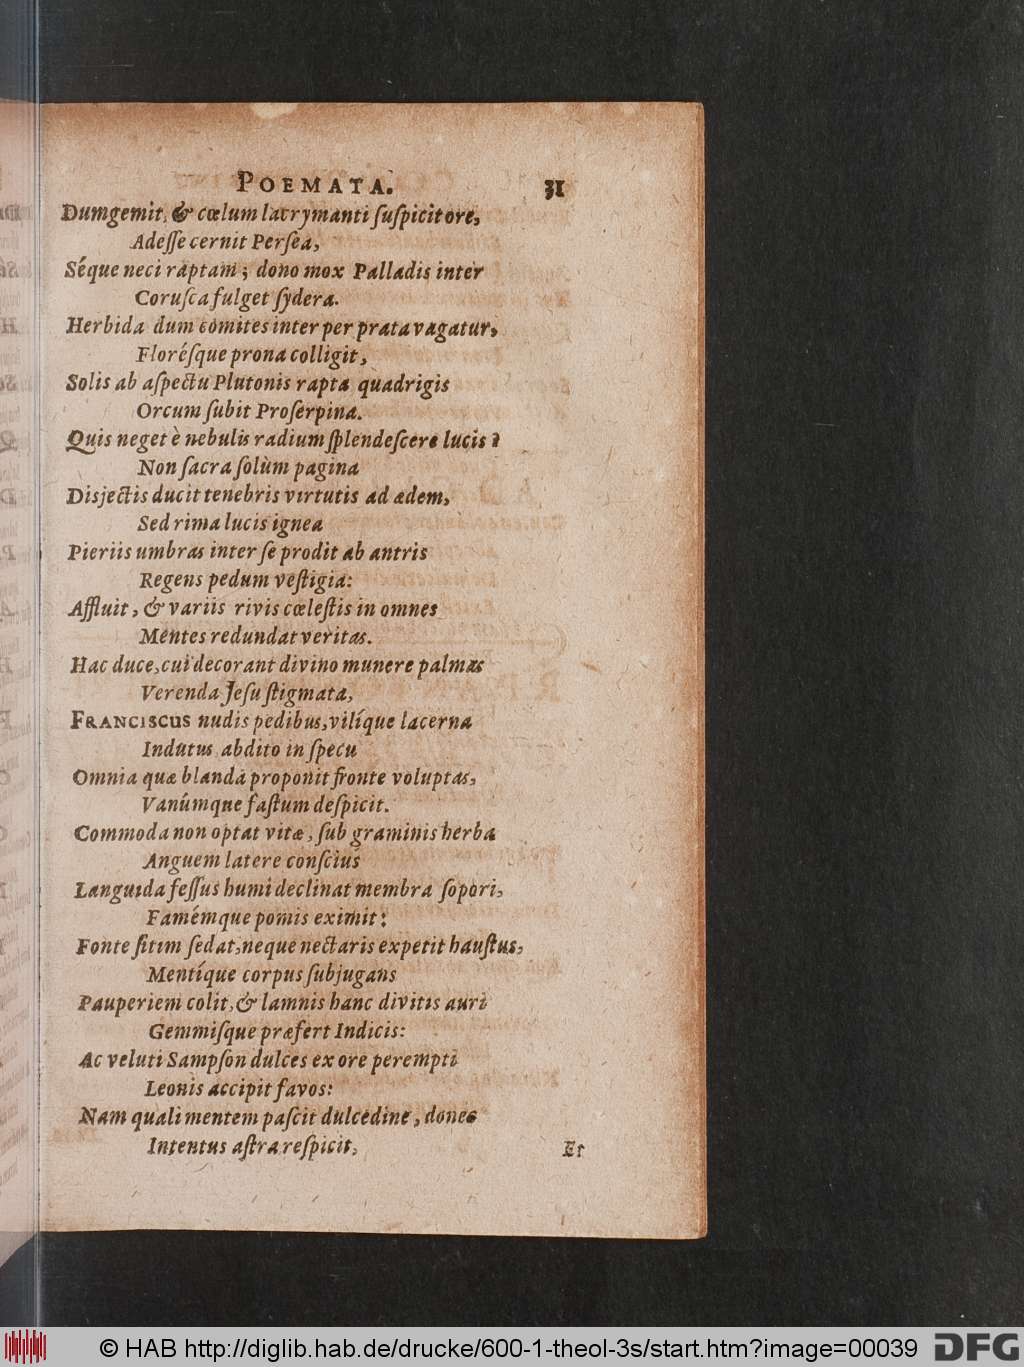 POEMATA. 31
Dum gemit, & cœlum lacrymanti ſuſpicit ore,
Adeſſe cernit Perſea,
Séque neci raptam; dono mox Palladis inter
Coruſca fulget ſydera.
Herbida dum comites inter per prata vagatur,
Floréſque prona colligit,
Solis ab aſpectu Plutonis rapta quadrigis
Orcum ſubit Proſerpina.
Quis neget è nebulis radium ſplendeſcere lucis?
Non ſacra ſolùm pagina
Disjectis ducit tenebris virtutis ad ædem,
Sed rima lucis ignea
Pieriis umbras inter ſe prodit ab antris
Regens pedum veſtigia:
Affluit, & variis rivis cœleſtis in omnes
Mentes redundat veritas.
Hac duce, cui decorant divino munere palmas
Verenda Jeſu ſtigmata,
FRANCISCUS nudis pedibus, vilíque lacerna
Indutus abdito in ſpecu
Omnia quæ blanda proponit fronte voluptas,
Vanúmque faſtum deſpicit.
Commoda non optat vitæ, ſub graminis herba
Anguem latere conſcius
Languida feſſus humi declinat membra ſopori,
Famémque pomis eximit:
Fonte ſitim ſedat, neque nectaris expetit hauſtus,
Mentíque corpus ſubjugans
Pauperiem colit, & lamnis hanc divitis auri
Gemmiſque præfert Indicis:
Ac veluti Sampſon dulces ex ore perempti
Leonis accipit favos:
Nam quali mentem paſcit dulcedine, donec
Intentus aſtra reſpicit,
Et
© HAB http://diglib.hab.de/drucke/600-1-theol-3s/start.htm?image=00039 DFG